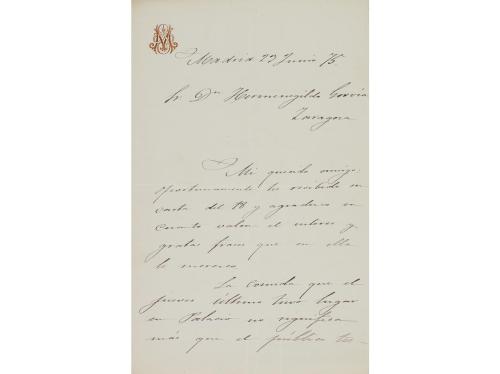 Madrid 23 Junio 75.
Sr. Dn. Hermenegildo Gorria
Zaragoza
Mi querido amigo:
oportunamente he recibido su
carta del 18 y agradezco en
cuanto valen el interes y
gratas frases que en ella
le merezco.
La comida que el
jueves último tuvo lugar
en Palacio no significa
más que el público tes-